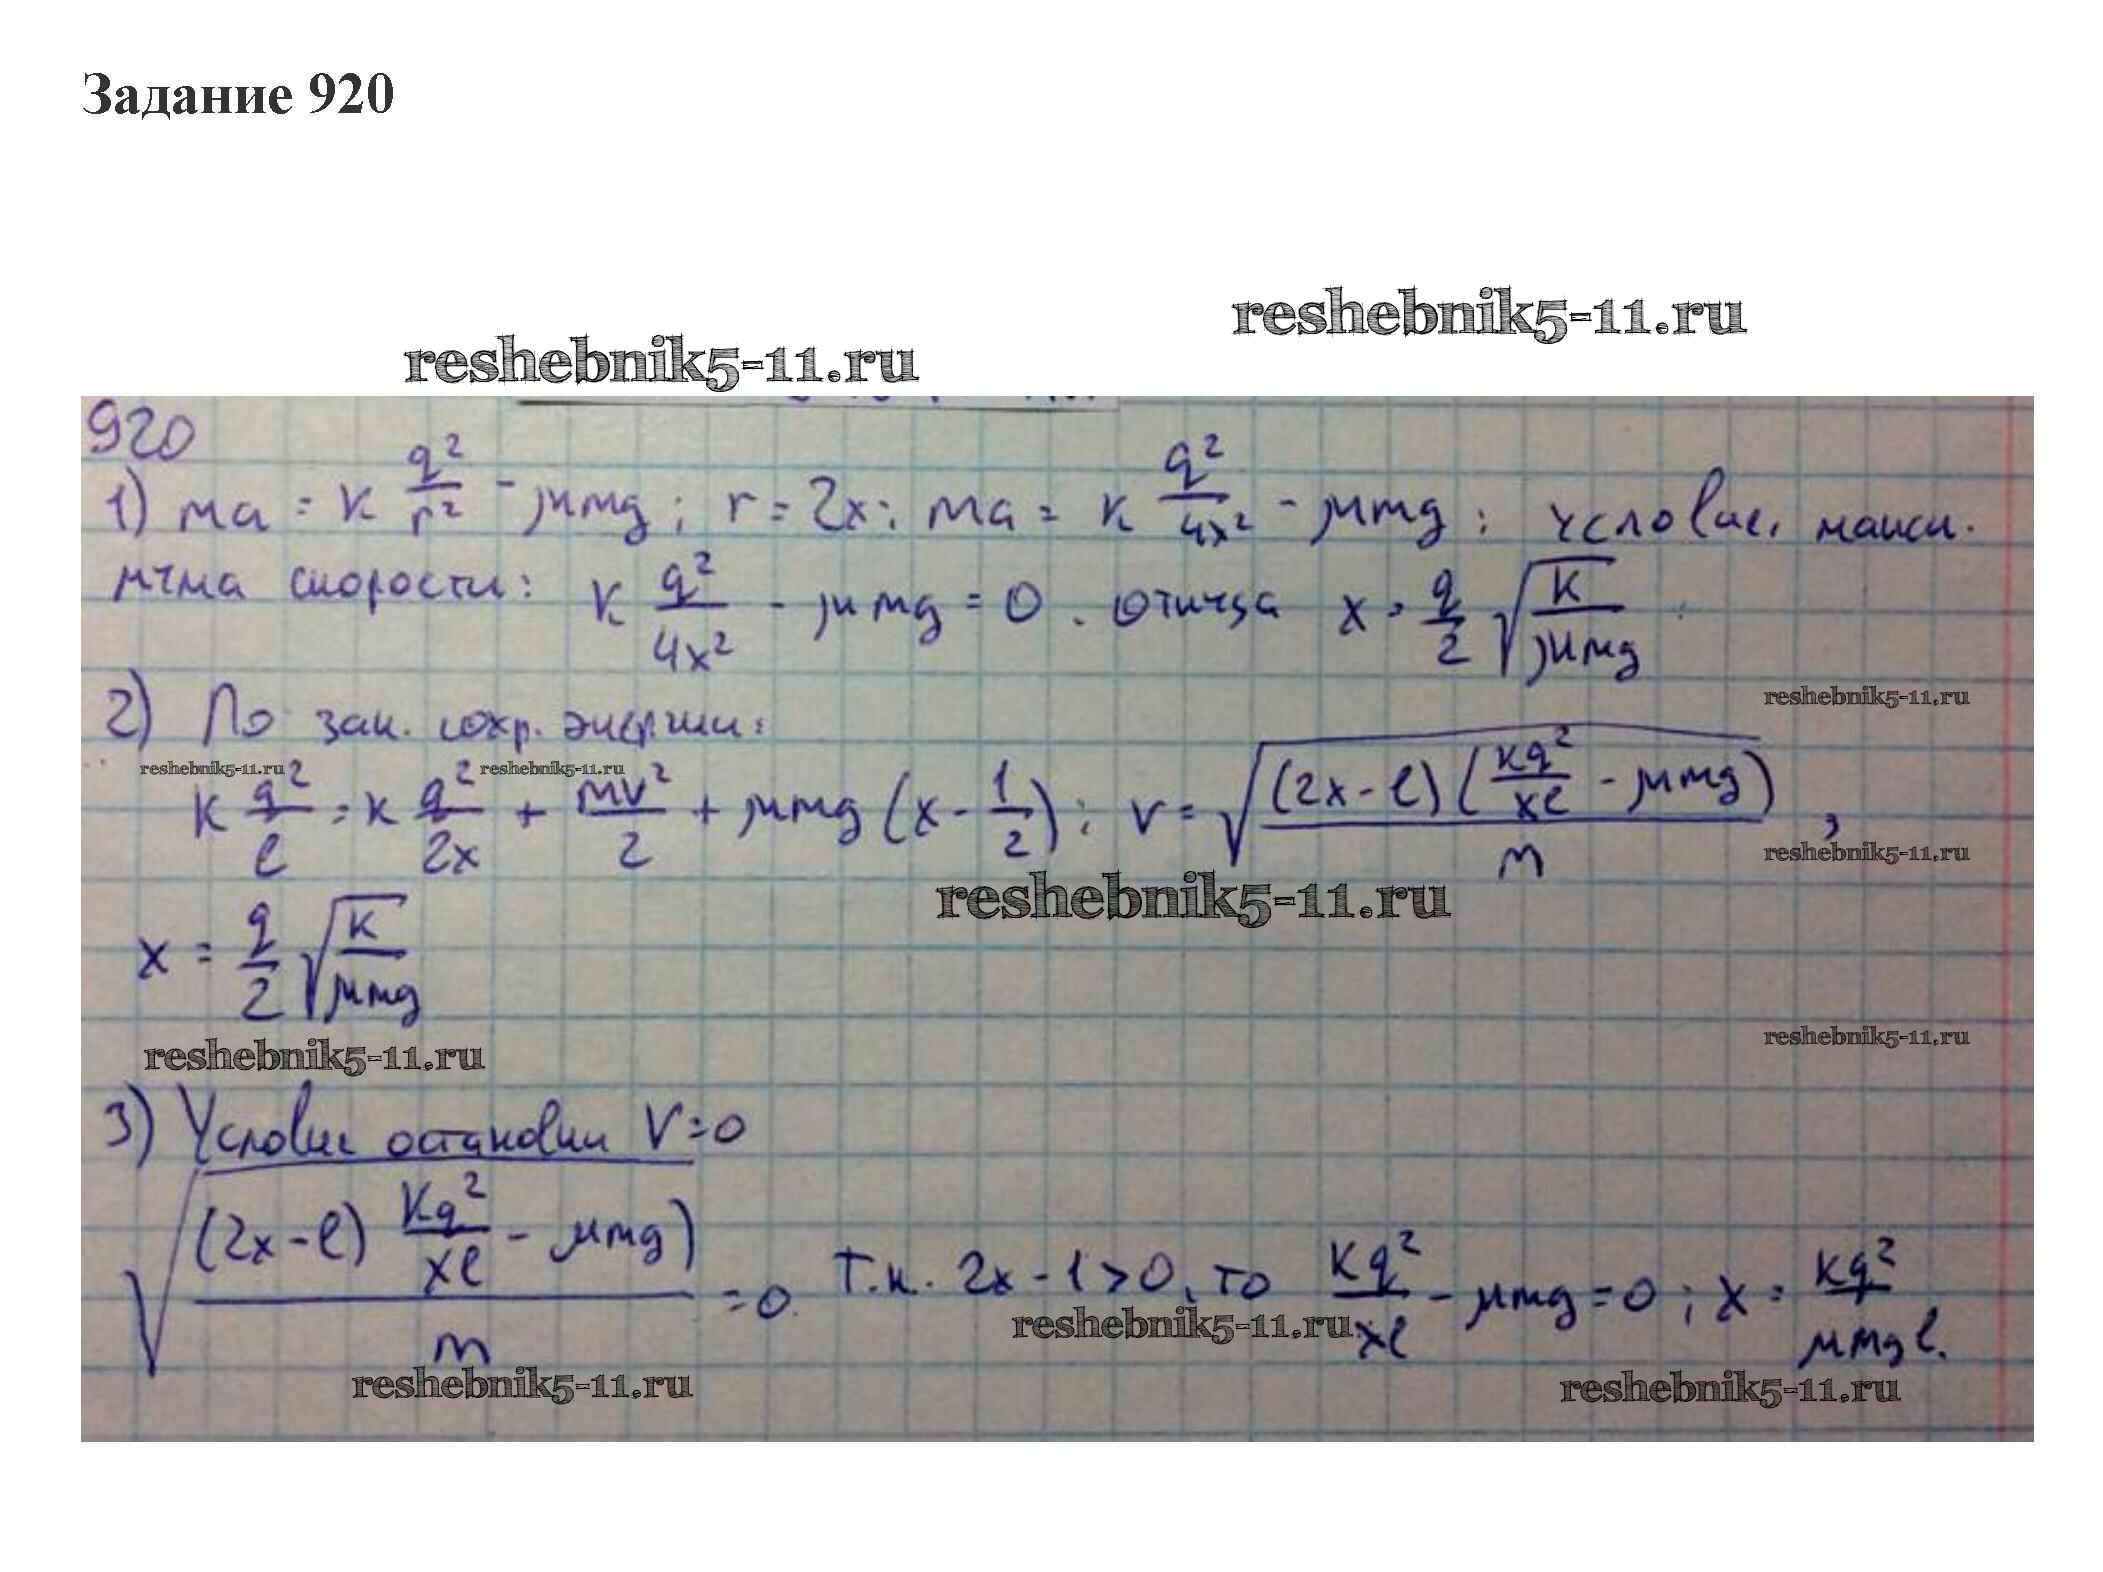 Задание 920
reshebnik5-11.ru
reshebnik5-11.ru
920
1) ma = k q²/r² - μmg; r = 2x; ma = k q²/4x² - μmg; условие макси-
мума скорости: k q²/4x² - μmg = 0. отсюда x = q/2 √(k/μmg)
reshebnik5-11.ru
2) По зак. сохр. энергии:
reshebnik5-11.ru reshebnik5-11.ru
k q²/l = k q²/2x + mv²/2 + μmg (x - 1/2); v = √((2x-l)(kq²/xl - μmg)/m),
reshebnik5-11.ru
reshebnik5-11.ru
x = q/2 √(k/μmg)
reshebnik5-11.ru
reshebnik5-11.ru
3) Условие остановки V=0
√((2x-l) kq²/xl - μmg)/m) = 0. Т.к. 2x-1>0, то kq²/xl - μmg = 0; x = kq²/μmgl.
reshebnik5-11.ru
reshebnik5-11.ru
reshebnik5-11.ru